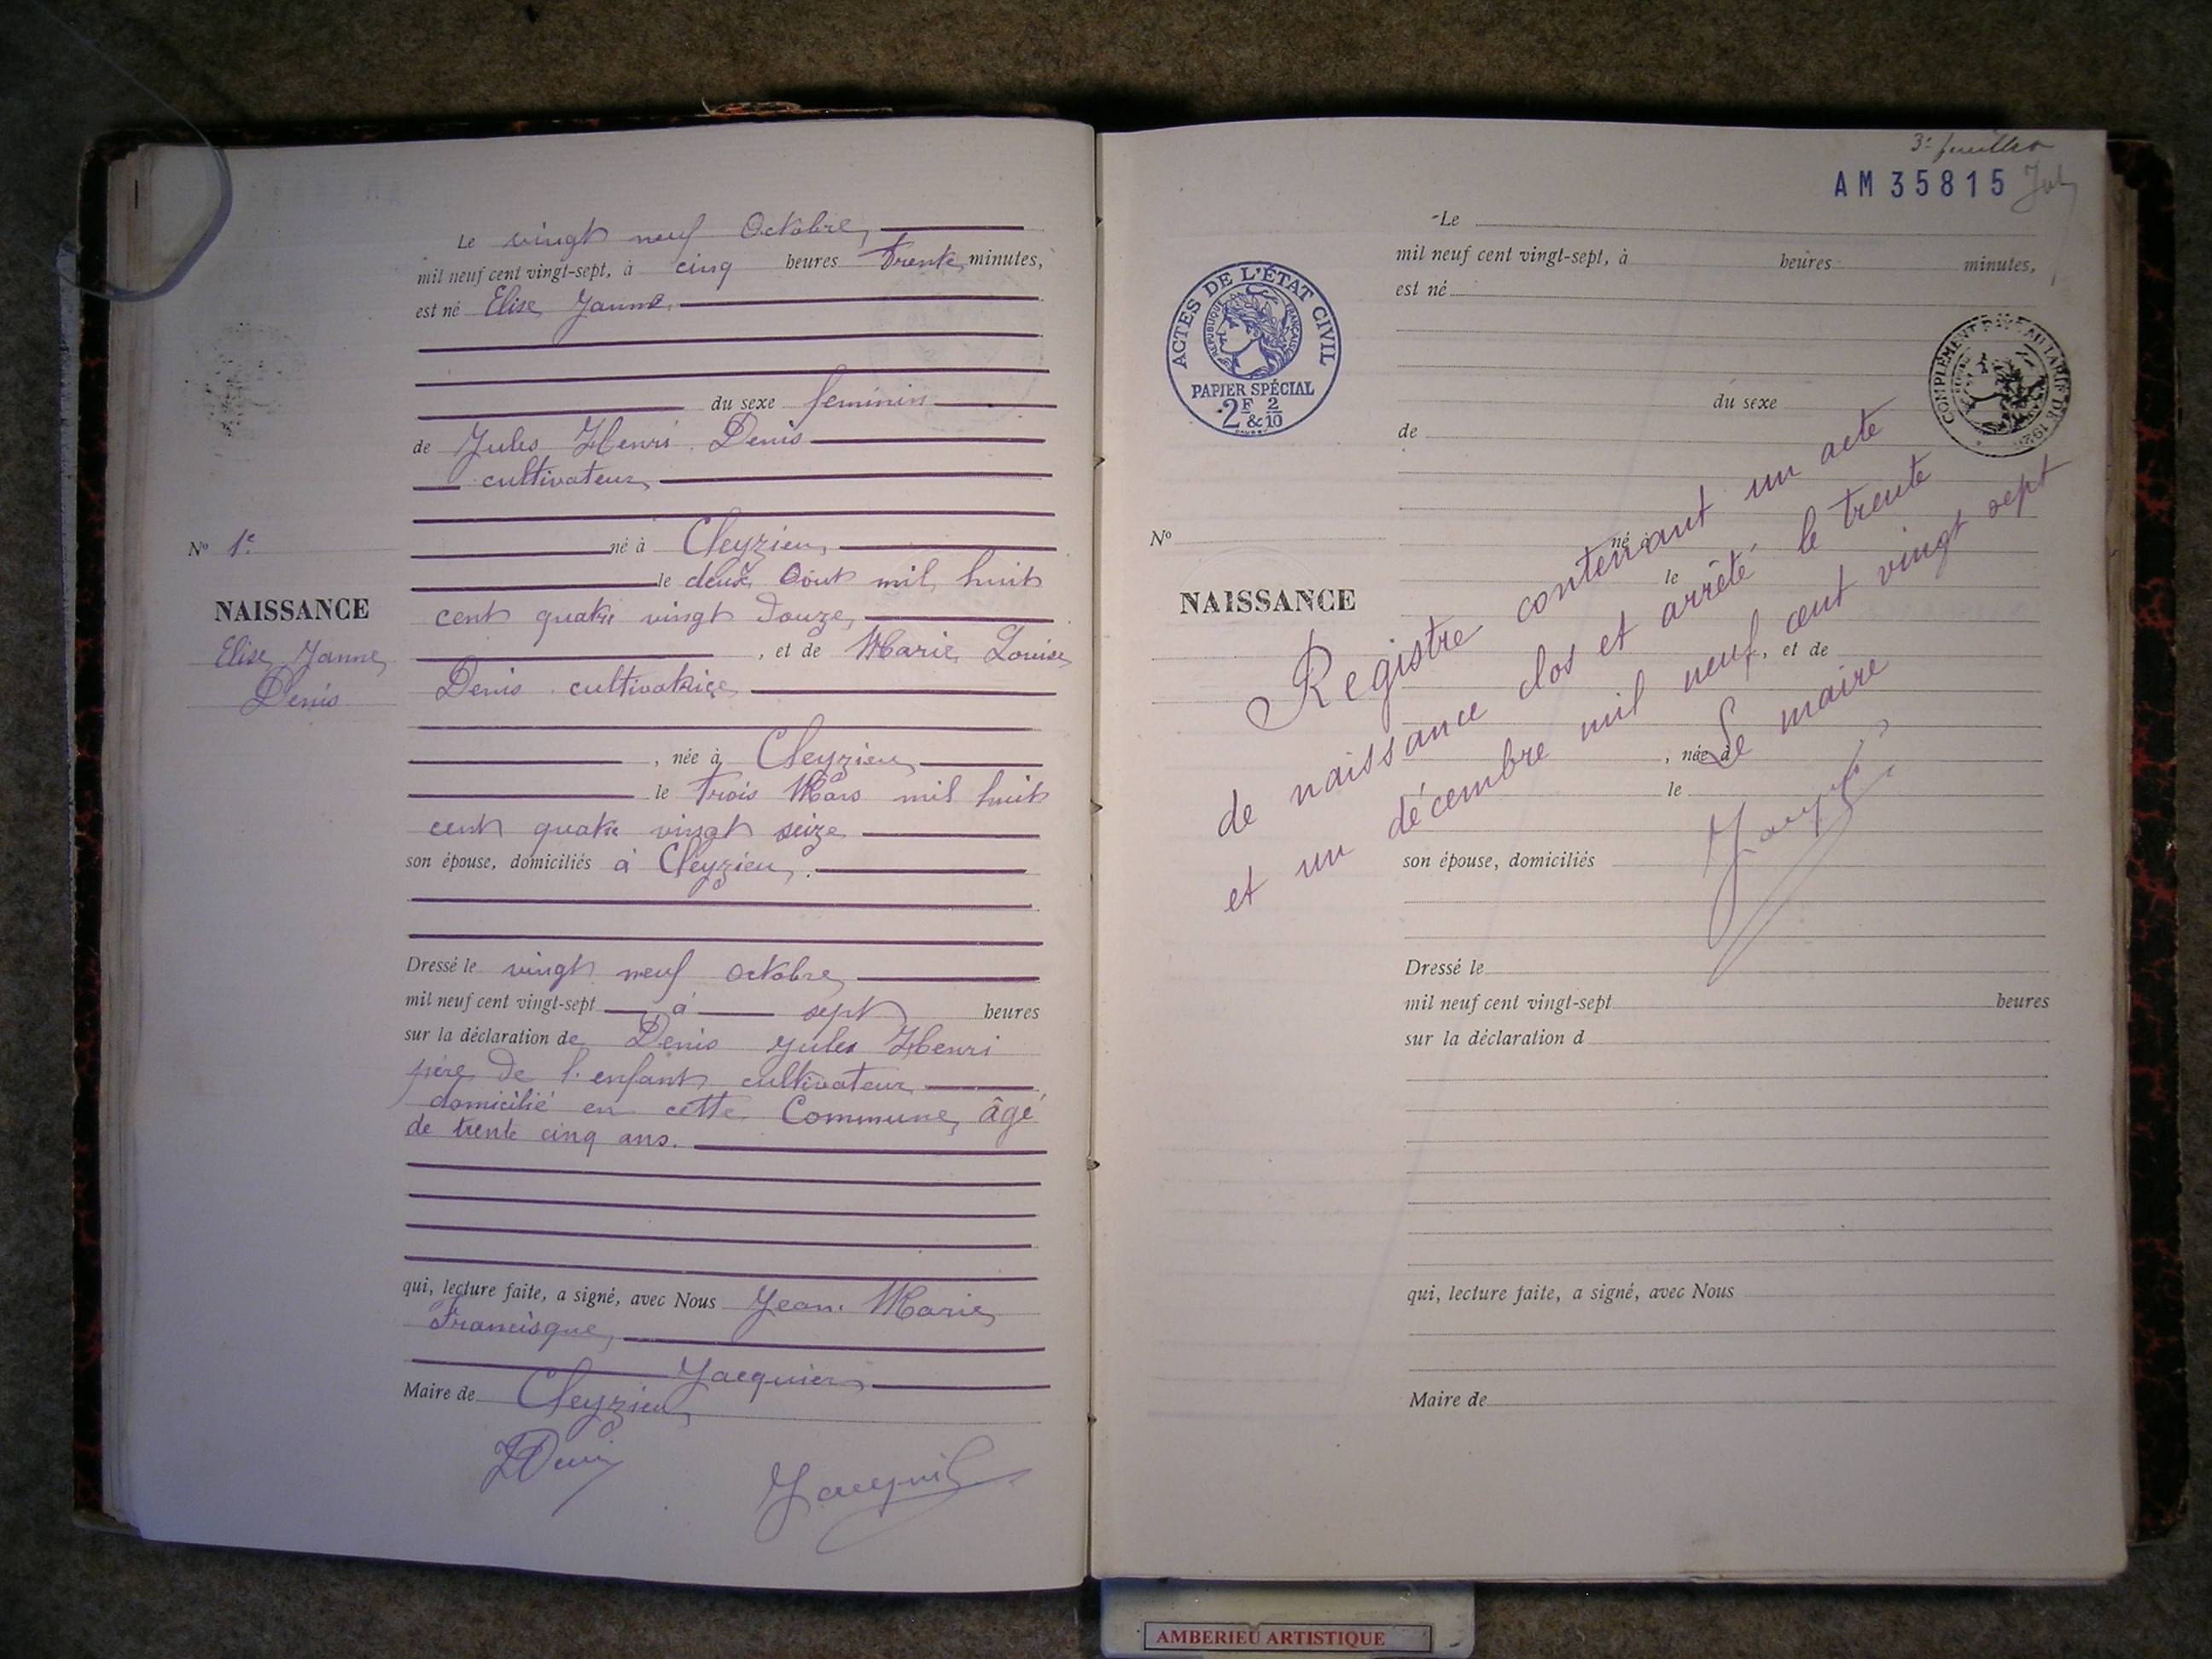 Le vingt neuf Octobre,
mil neuf cent vingt-sept, à cinq heures trente minutes,
est né Elise Janne,
du sexe féminin
de Jules Henri Denis
cultivateur,
né à Cleyzieu,
le deux Août mil huit
cent quatre vingt douze,
, et de Marie Louise
Denis cultivatrice,
, née à Cleyzieu,
le trois Mars mil huit
cent quatre vingt seize
son épouse, domiciliés à Cleyzieu,.
Dressé le vingt neuf octobre,
mil neuf cent vingt-sept à sept heures
sur la déclaration de Denis Jules Henri
père de l'enfant cultivateur
domicilié en cette Commune, âgé
de trente cinq ans.
qui, lecture faite, a signé, avec Nous Jean Marie
Francisque,
Jacquier,
Maire de Cleyzieu,
JDenis
Jacquier
No 1e
NAISSANCE
Elise Janne
Denis
3e feuillet
AM 35815
ACTES DE L'ÉTAT CIVIL
RÉPUBLIQUE FRANÇAISE
PAPIER SPÉCIAL
2F & 2/10
COMPLÉMENT
Le
mil neuf cent vingt-sept, à heures minutes,
est né
du sexe
de
No
NAISSANCE
né à
le
, et de
, née à
le
son épouse, domiciliés
Registre contenant un acte
de naissance clos et arrêté le trente
et un décembre mil neuf cent vingt sept
Le maire
Jacquier
Dressé le
mil neuf cent vingt-sept heures
sur la déclaration d
qui, lecture faite, a signé, avec Nous
Maire de
AMBERIEU ARTISTIQUE